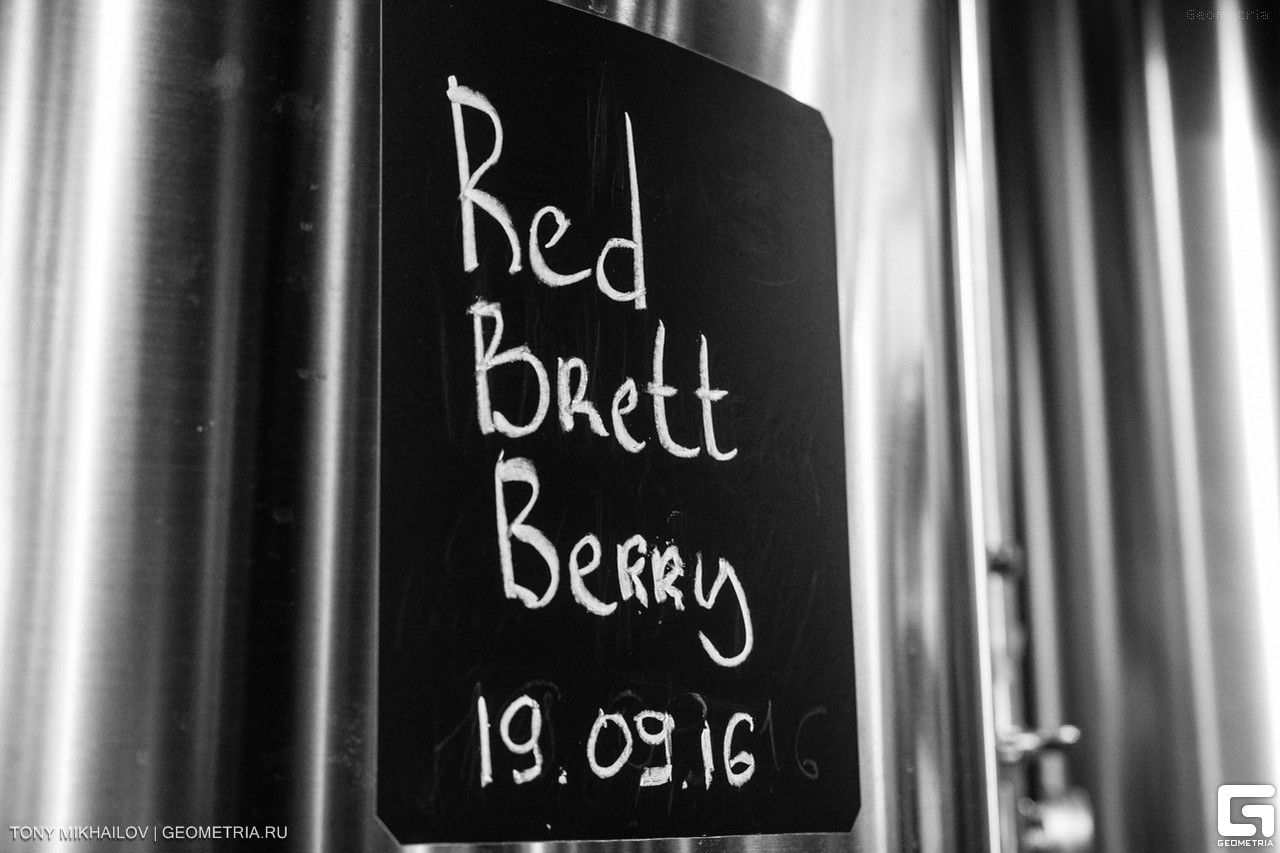 Geometria
Red
Brett
Berry
19.09.16
TONY MIKHAILOV | GEOMETRIA.RU
GEOMETRIA